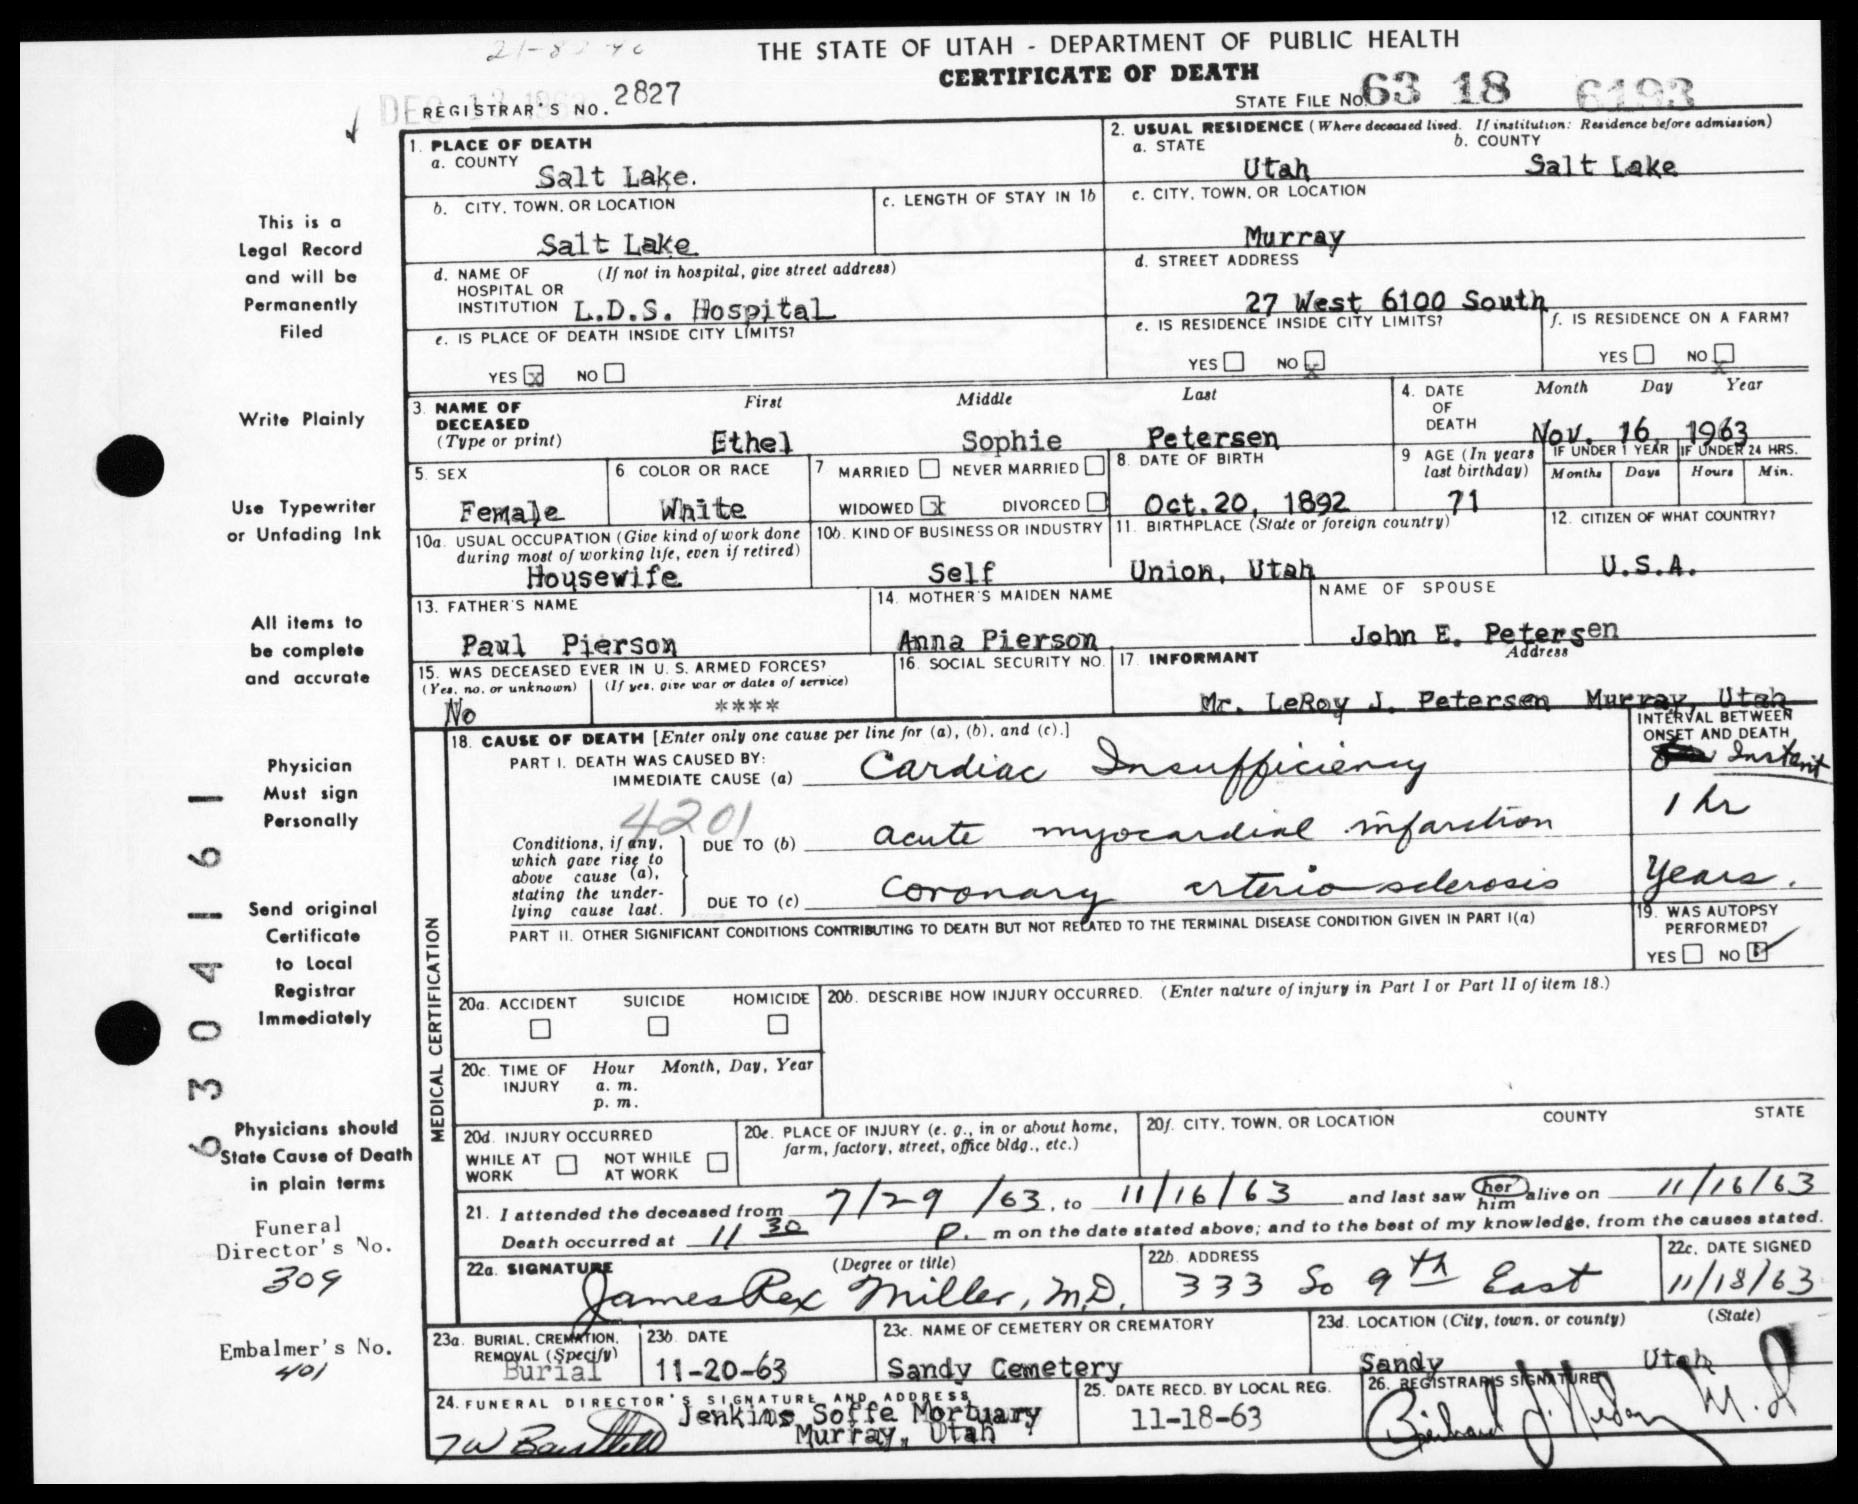 THE STATE OF UTAH - DEPARTMENT OF PUBLIC HEALTH
CERTIFICATE OF DEATH
REGISTRAR'S NO. 2827
STATE FILE NO. 63 18 6193
1. PLACE OF DEATH
a. COUNTY
Salt Lake.
2. USUAL RESIDENCE (Where deceased lived. If institution: Residence before admission)
a. STATE
Utah
b. COUNTY
Salt Lake
b. CITY, TOWN, OR LOCATION
Salt Lake
c. LENGTH OF STAY IN 1b
c. CITY, TOWN, OR LOCATION
Murray
d. NAME OF HOSPITAL OR INSTITUTION
(If not in hospital, give street address)
L.D.S. Hospital
d. STREET ADDRESS
27 West 6100 South
e. IS PLACE OF DEATH INSIDE CITY LIMITS?
YES x NO
e. IS RESIDENCE INSIDE CITY LIMITS?
YES NO x
f. IS RESIDENCE ON A FARM?
YES NO x
3. NAME OF DECEASED
(Type or print)
First Middle Last
Ethel Sophie Petersen
4. DATE OF DEATH
Month Day Year
Nov. 16, 1963
5. SEX
Female
6 COLOR OR RACE
White
7 MARRIED NEVER MARRIED
WIDOWED x DIVORCED
8. DATE OF BIRTH
Oct. 20, 1892
9 AGE (In years last birthday)
71
IF UNDER 1 YEAR
Months Days
IF UNDER 24 HRS.
Hours Min.
10a. USUAL OCCUPATION (Give kind of work done during most of working life, even if retired)
Housewife
10b. KIND OF BUSINESS OR INDUSTRY
Self
11. BIRTHPLACE (State or foreign country)
Union, Utah
12. CITIZEN OF WHAT COUNTRY?
U.S.A.
13. FATHER'S NAME
Paul Pierson
14. MOTHER'S MAIDEN NAME
Anna Pierson
NAME OF SPOUSE
John E. Petersen
15. WAS DECEASED EVER IN U. S. ARMED FORCES?
(Yes, no, or unknown)
No
(If yes, give war or dates of service)
****
16. SOCIAL SECURITY NO.
17. INFORMANT
Address
Mr. LeRoy J. Petersen Murray, Utah
MEDICAL CERTIFICATION
18. CAUSE OF DEATH [Enter only one cause per line for (a), (b), and (c).]
INTERVAL BETWEEN ONSET AND DEATH
PART I. DEATH WAS CAUSED BY:
IMMEDIATE CAUSE (a) Cardiac Insufficiency
Instant
4201
Conditions, if any, which gave rise to above cause (a), stating the underlying cause last.
DUE TO (b) acute myocardial infarction
1 hr
DUE TO (c) coronary arterio-sclerosis
Years.
PART II. OTHER SIGNIFICANT CONDITIONS CONTRIBUTING TO DEATH BUT NOT RELATED TO THE TERMINAL DISEASE CONDITION GIVEN IN PART I(a)
19. WAS AUTOPSY PERFORMED?
YES NO
20a. ACCIDENT SUICIDE HOMICIDE
20b. DESCRIBE HOW INJURY OCCURRED. (Enter nature of injury in Part I or Part II of item 18.)
20c. TIME OF INJURY
Hour Month, Day, Year
a. m.
p. m.
20d. INJURY OCCURRED
WHILE AT WORK
NOT WHILE AT WORK
20e. PLACE OF INJURY (e. g., in or about home, farm, factory, street, office bldg., etc.)
20f. CITY, TOWN, OR LOCATION COUNTY STATE
21. I attended the deceased from 7/29/63, to 11/16/63 and last saw her him alive on 11/16/63
Death occurred at 11 30 P. m on the date stated above; and to the best of my knowledge, from the causes stated.
22a. SIGNATURE (Degree or title)
James Rex Miller, M.D.
22b. ADDRESS
333 So 9th East
22c. DATE SIGNED
11/18/63
23a. BURIAL, CREMATION, REMOVAL (Specify)
Burial
23b. DATE
11-20-63
23c. NAME OF CEMETERY OR CREMATORY
Sandy Cemetery
23d. LOCATION (City, town, or county) (State)
Sandy Utah
24. FUNERAL DIRECTOR'S SIGNATURE AND ADDRESS
Jenkins Soffe Mortuary
Murray, Utah
25. DATE RECD. BY LOCAL REG.
11-18-63
26. REGISTRAR'S SIGNATURE
This is a
Legal Record
and will be
Permanently
Filed
Write Plainly
Use Typewriter
or Unfading Ink
All items to
be complete
and accurate
Physician
Must sign
Personally
Send original
Certificate
to Local
Registrar
Immediately
Physicians should
State Cause of Death
in plain terms
Funeral
Director's No.
309
Embalmer's No.
401
63041161